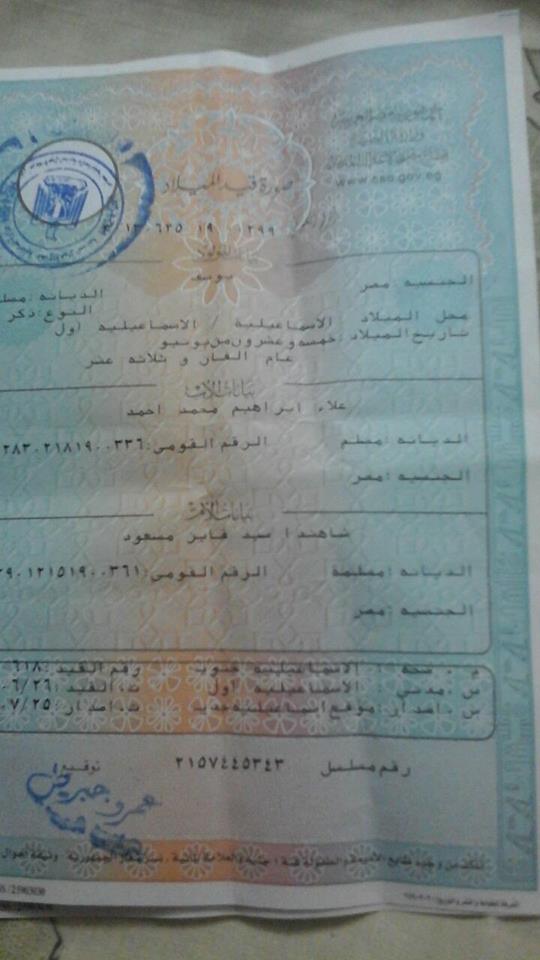 جمهورية مصر العربية
وزارة الداخلية
www.cso.gov.eg
صورة قيد الميلاد
١٣٠٦٢٥ ١٩ ١٢٩٩
بيانات المولود
يوسف
الجنسيه : مصر الديانه : مسلم
محل الميلاد : الاسماعيلية / الاسماعيليه اول النوع : ذكر
تاريخ الميلاد : خمسه وعشرون من يونيو
عام الفان و ثلاثه عشر
بيانات الأب
علاء ابراهيم محمد احمد
الديانه : مسلم الرقم القومى : ٢٨٣٠٢١٨١٩٠٠٣٣٦
الجنسيه : مصر
بيانات الأم
شاهندا سيد فايز مسعود
الديانه : مسلمة الرقم القومى : ٢٩٠١٢١٥١٩٠٠٣٦١
الجنسيه : مصر
م . صحه : الاسماعيليه جنوب رقم القيد : ٦١٨
س . مدنى : الاسماعيليه اول ت. القيد : ٠٦/٢٦
س . اصدار : موقع اسماعيلية جديد ت. اصدار : ٠٧/٢٥
رقم مسلسل ٢١٥٧٤٤٥٣٤٣ توقيع :